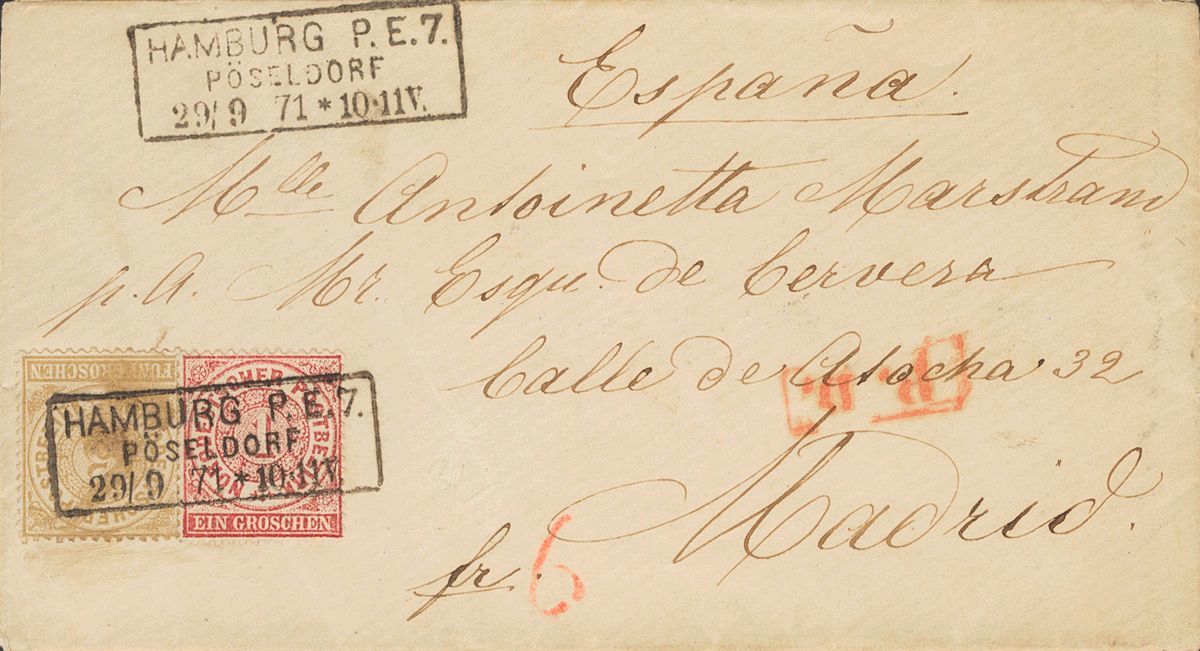 HAMBURG P.E.7.
PÖSELDORF
29/9 71 * 10-11V.
España.
Mlle Antoinetta Marstrand
p. A. Mr. Esqu. de Cervera
Calle de Atocha 32
P.D.
Madrid.
fr. 6
FÜNF GROSCHEN
EIN GROSCHEN
1
HAMBURG P.E.7.
PÖSELDORF
29/9 71 * 10-11V.